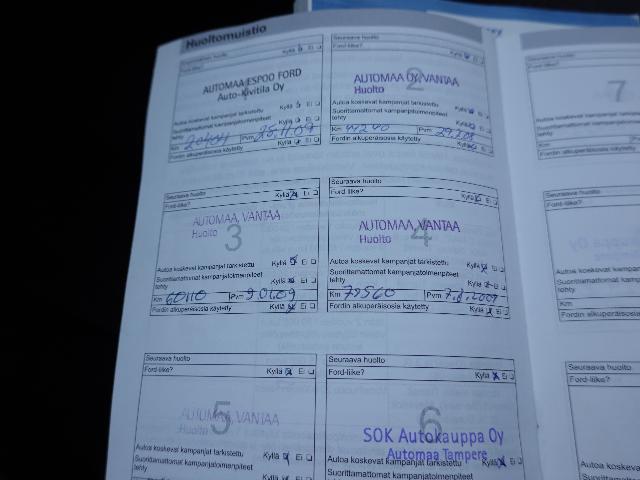 Huoltomuistio
Ensimmäinen huolto Kyllä Ei
Ford-liike?
1
AUTOMAA ESPOO FORD
Auto-Kivitila Oy
Autoa koskevat kampanjat tarkistettu Kyllä Ei
Suorittamattomat kampanjatoimenpiteet
tehty Kyllä Ei
Km Pvm
Fordin alkuperäisosia käytetty Kyllä Ei
Seuraava huolto
Ford-liike? Kyllä Ei
2
AUTOMAA OY, VANTAA
Huolto
Autoa koskevat kampanjat tarkistettu Kyllä Ei
Suorittamattomat kampanjatoimenpiteet
tehty Kyllä Ei
Km Pvm
Fordin alkuperäisosia käytetty Kyllä Ei
Seuraava huolto
Ford-liike? Kyllä Ei
3
AUTOMAA, VANTAA
Huolto
Autoa koskevat kampanjat tarkistettu Kyllä Ei
Suorittamattomat kampanjatoimenpiteet
tehty Kyllä Ei
Km 60110 Pvm
Fordin alkuperäisosia käytetty Kyllä Ei
Seuraava huolto
Ford-liike? Kyllä Ei
4
AUTOMAA, VANTAA
Huolto
Autoa koskevat kampanjat tarkistettu Kyllä Ei
Suorittamattomat kampanjatoimenpiteet
tehty Kyllä Ei
Km 79560 Pvm
Fordin alkuperäisosia käytetty Kyllä Ei
Seuraava huolto
Ford-liike? Kyllä Ei
5
AUTOMAA, VANTAA
Huolto
Autoa koskevat kampanjat tarkistettu
Suorittamattomat kampanjatoimenpiteet
tehty Kyllä Ei
Seuraava huolto
Ford-liike? Kyllä Ei
6
SOK Autokauppa Oy
Automaa Tampere
Autoa koskevat kampanjat tarkistettu Kyllä Ei
Suorittamattomat kampanjatoimenpiteet
Seuraava huolto
Ford-liike?
7
Autoa koskevat
Suorittamattomat
tehty
Km
Fordin alkuperäisosia
Seuraava huolto
Ford-liike?
Autoa koskevat
Suorittamattomat
tehty
Km
Fordin alkuperäisosia
Seuraava huolto
Ford-liike?